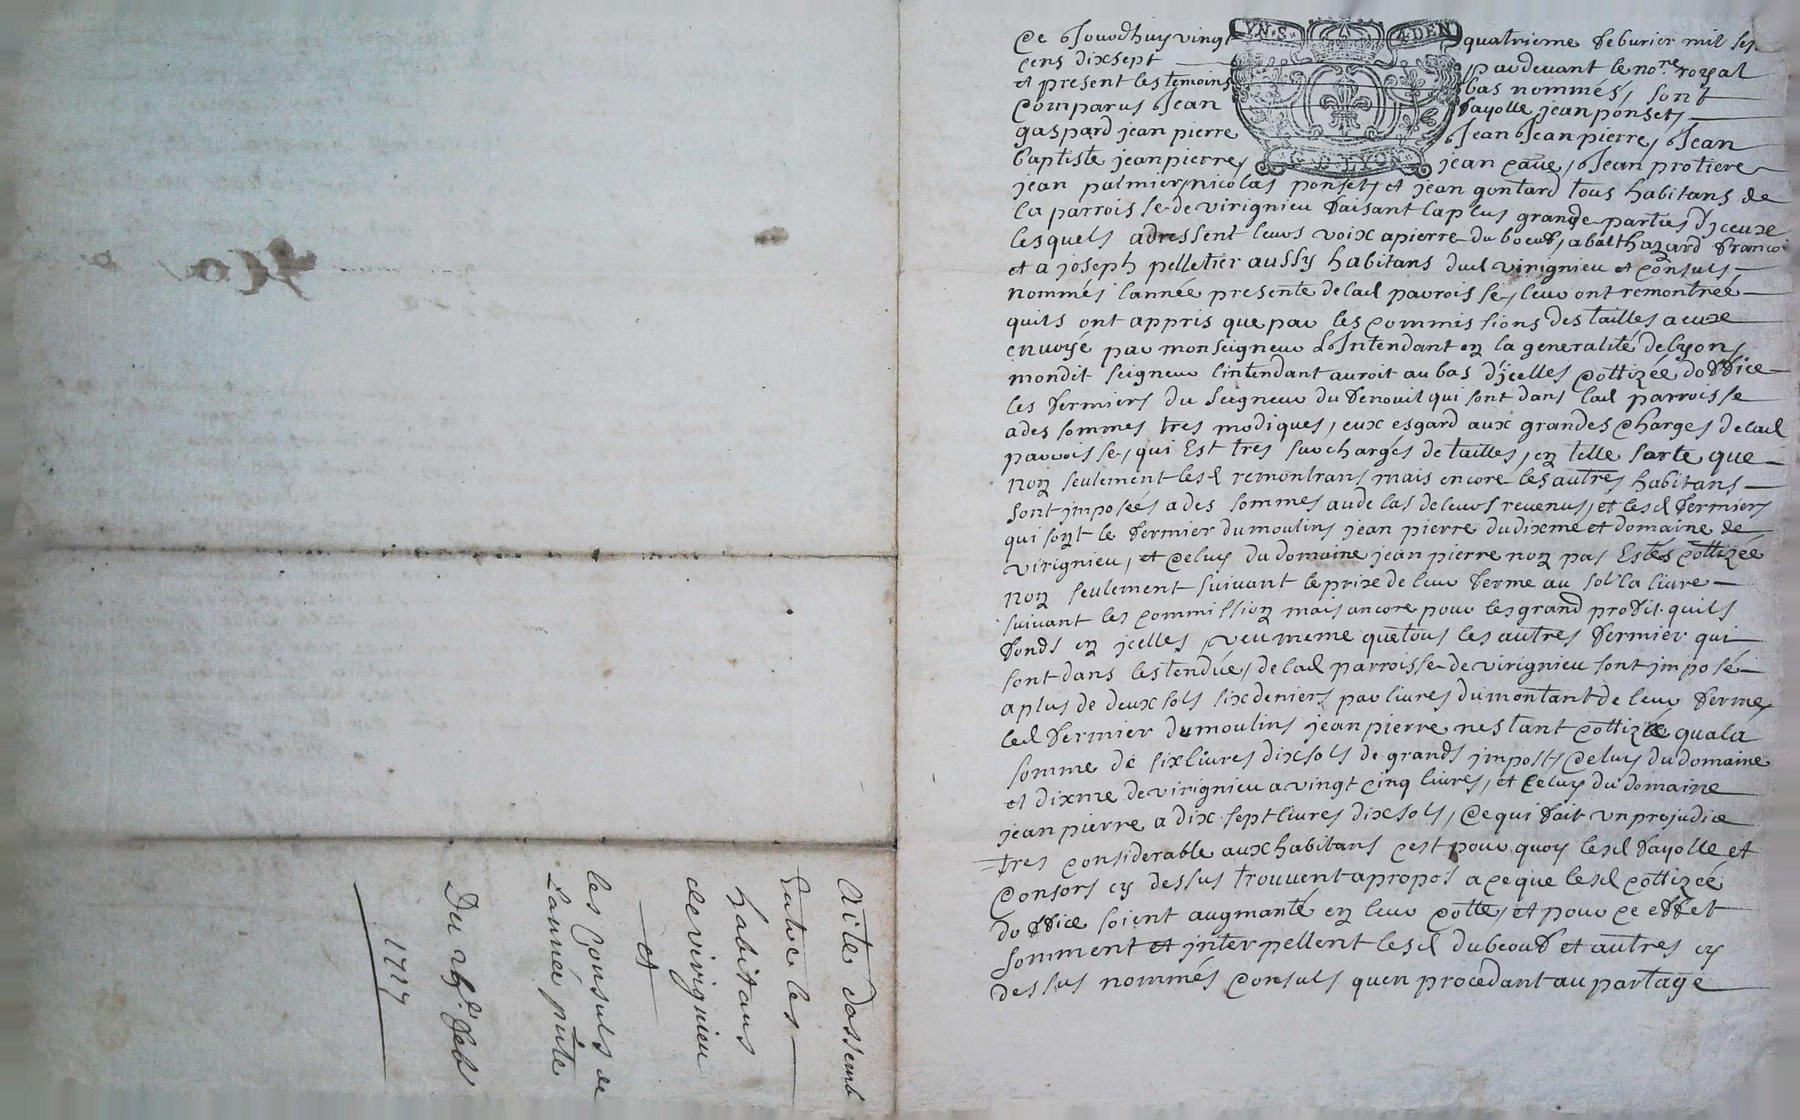 Ce Jourdhuy vingt quatrieme feburier mil sept
cens dix sept pardevant le no.re royal
et present les temoins bas nommés, sont
Comparus Jean fayolle, jean ponset,
gaspard jean pierre Jean Jean pierre, Jean
baptiste jean pierre, jean caue, Jean protiere
jean palmier, nicolas ponset, et jean gontard tous habitans de
la parroisse de virignieu faisant la plus grande parties d'jceux
lesquels adressent leurs voix a pierre du boeuf, a balthazard francoi
et a joseph pelletier aussy habitans dud virignieu et Consuls,
nommés lannée presente de lad parroisse, leur ont remontrée
quils ont appris que par les commissions des tailles a eux
envoyé par monseigneur L'Intendant en la generalité de lyon,
mondit seigneur lintendant auroit au bas d'jcelles cottizée doffice
les fermiers du seigneur du fenouil qui sont dans lad parroisse
a des sommes tres modiques, eux esgard aux grandes charges de lad
parroisse, qui Est tres surchargés de tailles, en telle sorte que
non seulement lesd remontrans mais encore les autres habitans
sont jmposées a des sommes audelas de leurs reuenus, et lesd fermiers
qui sont le fermier du moulins jean pierre du dixme et domaine de
virignieu, et celuy du domaine jean pierre non pas Estés cottizée
non seulement suivant le prix de leur ferme au sol la liure
suivant les commission mais ancore pour les grand profit quils
fonds en jcelles, veu meme que tous les autres fermier qui
sont dans lestendue, de lad parroisse de virignieu sont jmposé
a plus de deux sols six deniers par liures du montant de leur ferme,
led fermier du moulins jean pierre nestant cottizée qua la
somme de six liures dix sols de grands jmposts, celuy du domaine
et dixme de virignieu a vingt cinq liures, et celuy du domaine
jean pierre a dix sept liures dix sols, ce qui fait vn prejudice
tres considerable aux habitans c'est pour quoy lesd fayolle et
Consors cy dessus trouvent a propos a ce que lesd cottizée
doffice soient augmanté en leur cotte, et pour ce effet
somment et jnterpellent lesd dubeouf et autres cy
dessus nommés Consuls quen procedant au partage
Acte dassemb
Entre les
habitans
de virignieu
et
les Consuls de
Lannée pnte
Du 24.e feb
1717